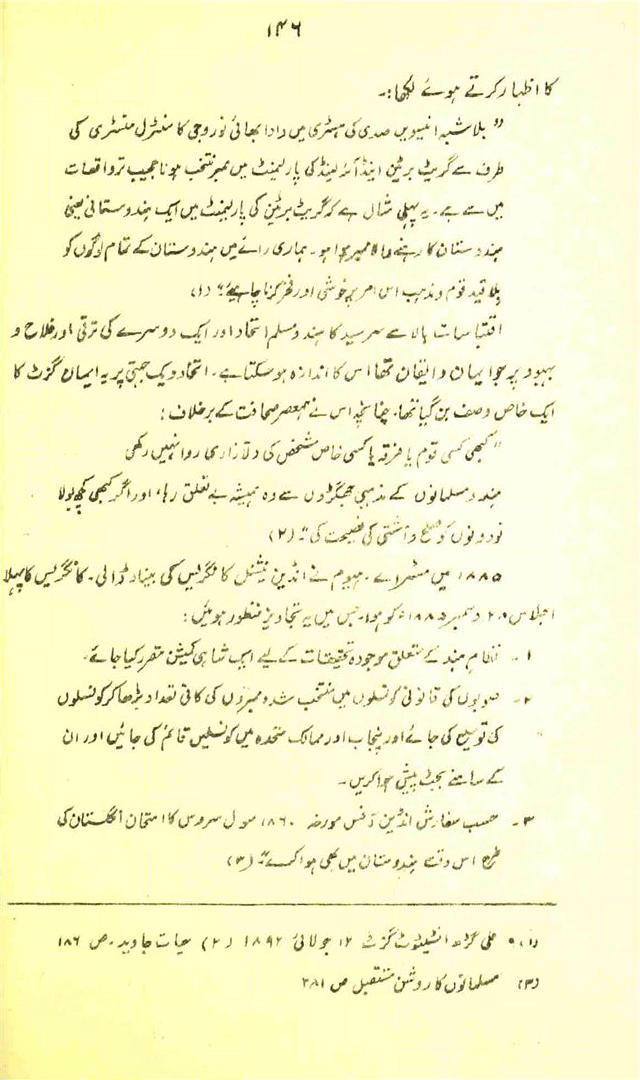 ۱۴۶
کا اظہار کرتے ہوئے لکھا:۔
” بلاشبہ انیسویں صدی کی ہسٹری میں دادا بھائی نوروجی کا سنٹرل منسٹری کی
طرف سے گریٹ برٹین اینڈ آئرلینڈ کی پارلیمنٹ میں ممبر منتخب ہونا عجیب تر واقعات
میں سے ہے۔ یہ پہلی مثال ہے کہ گریٹ برٹین کی پارلیمنٹ میں ایک ہندوستانی یعنی
ہندوستان کا رہنے والا ممبر ہوا ہو۔ ہماری رائے میں ہندوستان کے تمام لوگوں کو
بلا قید قوم و مذہب اس امر پر خوشی اور فخر کرنا چاہیے“ (۱)
اقتباسات بالا سے سرسید کا ہندو مسلم اتحاد اور ایک دوسرے کی ترقی اور فلاح و
بہبود پر جو ایمان و ایقان تھا اس کا اندازہ ہو سکتا ہے۔ اتحاد و یک جہتی پر یہ ایمان گزٹ کا
ایک خاص وصف بن گیا تھا۔ چنانچہ اس نے ہمعصر صحافت کے برخلاف :
” کبھی کسی قوم یا فرقہ یا کسی خاص شخص کی دلآزاری روا نہیں رکھی
ہندو مسلمانوں کے مذہبی جھگڑوں سے وہ ہمیشہ بے تعلق رہا، اور اگر کبھی کچھ بولا
تو دونوں کو صلح و آشتی کی نصیحت کی“ (۲)
۱۸۸۵ میں مسٹر اے۔ ہیوم نے انڈین نیشنل کانگریس کی بنیاد ڈالی۔ کانگریس کا پہلا
اجلاس ۲۸ دسمبر ۱۸۸۵ء کو ہوا۔ جس میں یہ تجاویز منظور ہوئیں:
۱۔ نظام ہند کے متعلق موجودہ تحقیقات کے لیے ایک شاہی کمیشن مقرر کیا جائے۔
۲۔ صوبوں کی قانونی کونسلوں میں منتخب شدہ ممبروں کی کافی تعداد بڑھا کر کونسلوں
کی توسیع کی جائے اور پنجاب اور ممالک متحدہ میں کونسلیں قائم کی جائیں اور ان
کے سامنے بجٹ پیش ہوا کریں۔
۳۔ حسب سفارش انڈین آفس مورخہ ۱۸۶۰ سول سروس کا امتحان انگلستان کی
طرح اس وقت ہندوستان میں بھی ہوا کرے“ (۳)
(۱) علی گڑھ انسٹیٹیوٹ گزٹ ۱۲ جولائی ۱۸۹۲ (۲) حیات جاوید۔ ص ۱۸۶
(۳) مسلمانوں کا روشن مستقبل ص ۲۸۱